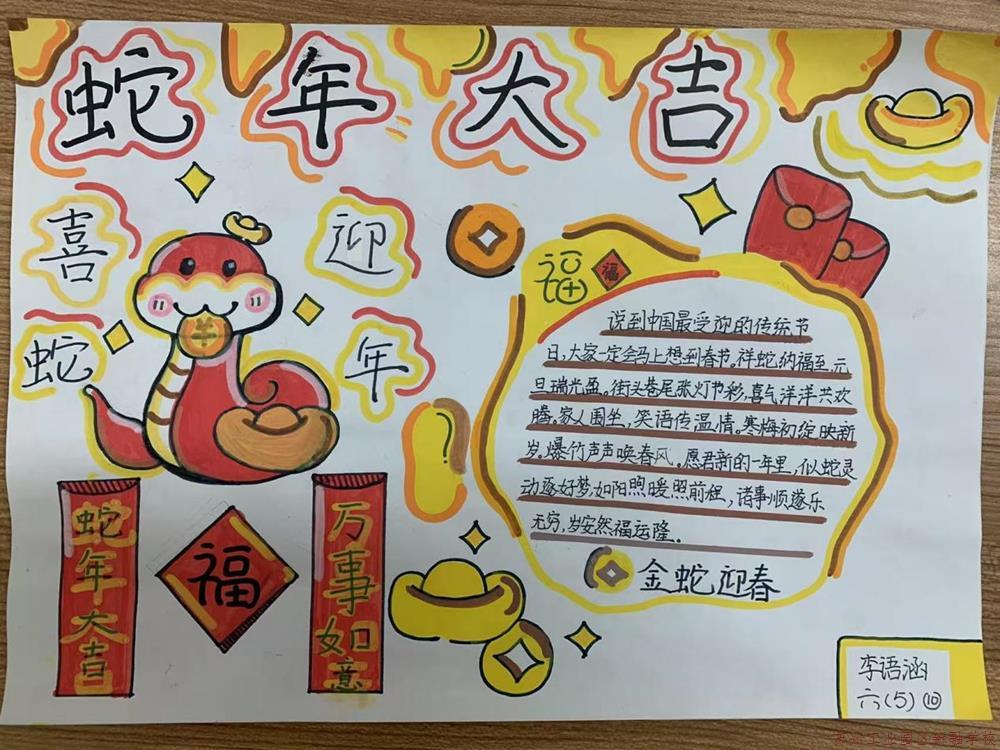 蛇年大吉
喜迎
蛇年
福
福
说到中国最受迎的传统节
日,大家一定会马上想到春节。祥蛇纳福至,元
旦瑞光盈。街头巷尾张灯节彩,喜气洋洋共欢
腾。家人围坐,笑语传温情。寒梅初绽映新
岁,爆竹声声唤春风。愿君新的一年里,似蛇灵
动逐好梦,如阳煦暖照前程,诸事顺遂乐
无穷,岁安然福运隆。
金蛇迎春
蛇年大吉
福
万事如意
李语涵
六(5) ⑩